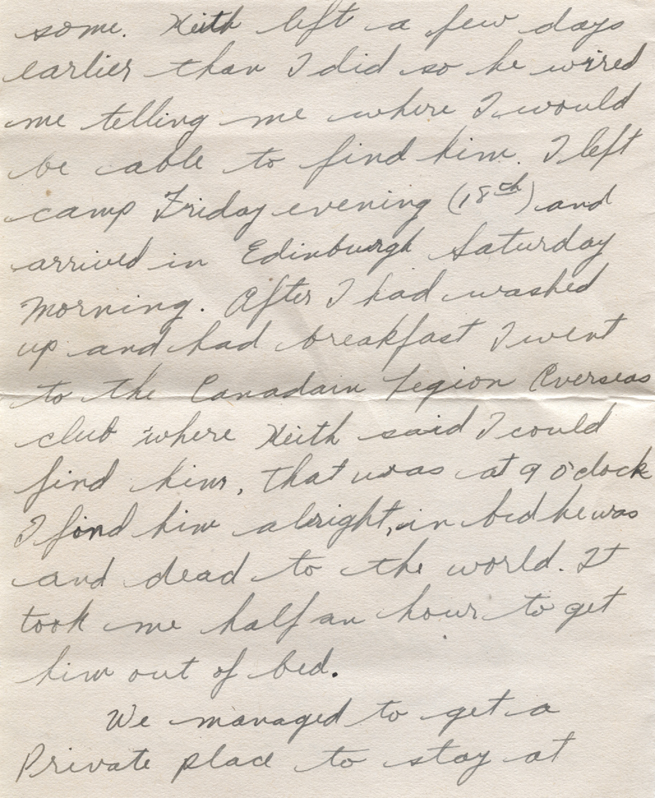 some. Keith left a few days
earlier than I did so he wired
me telling me where I would
be able to find him. I left
camp Friday evening (18th) and
arrived in Edinburgh Saturday
morning. After I had washed
up and had breakfast I went
to the Canadain Legion Overseas
club where Keith said I could
find him, that was at 9 o'clock
I fond him alright, in bed he was
and dead to the world. It
took me half an hour to get
him out of bed.
We managed to get a
Private place to stay at